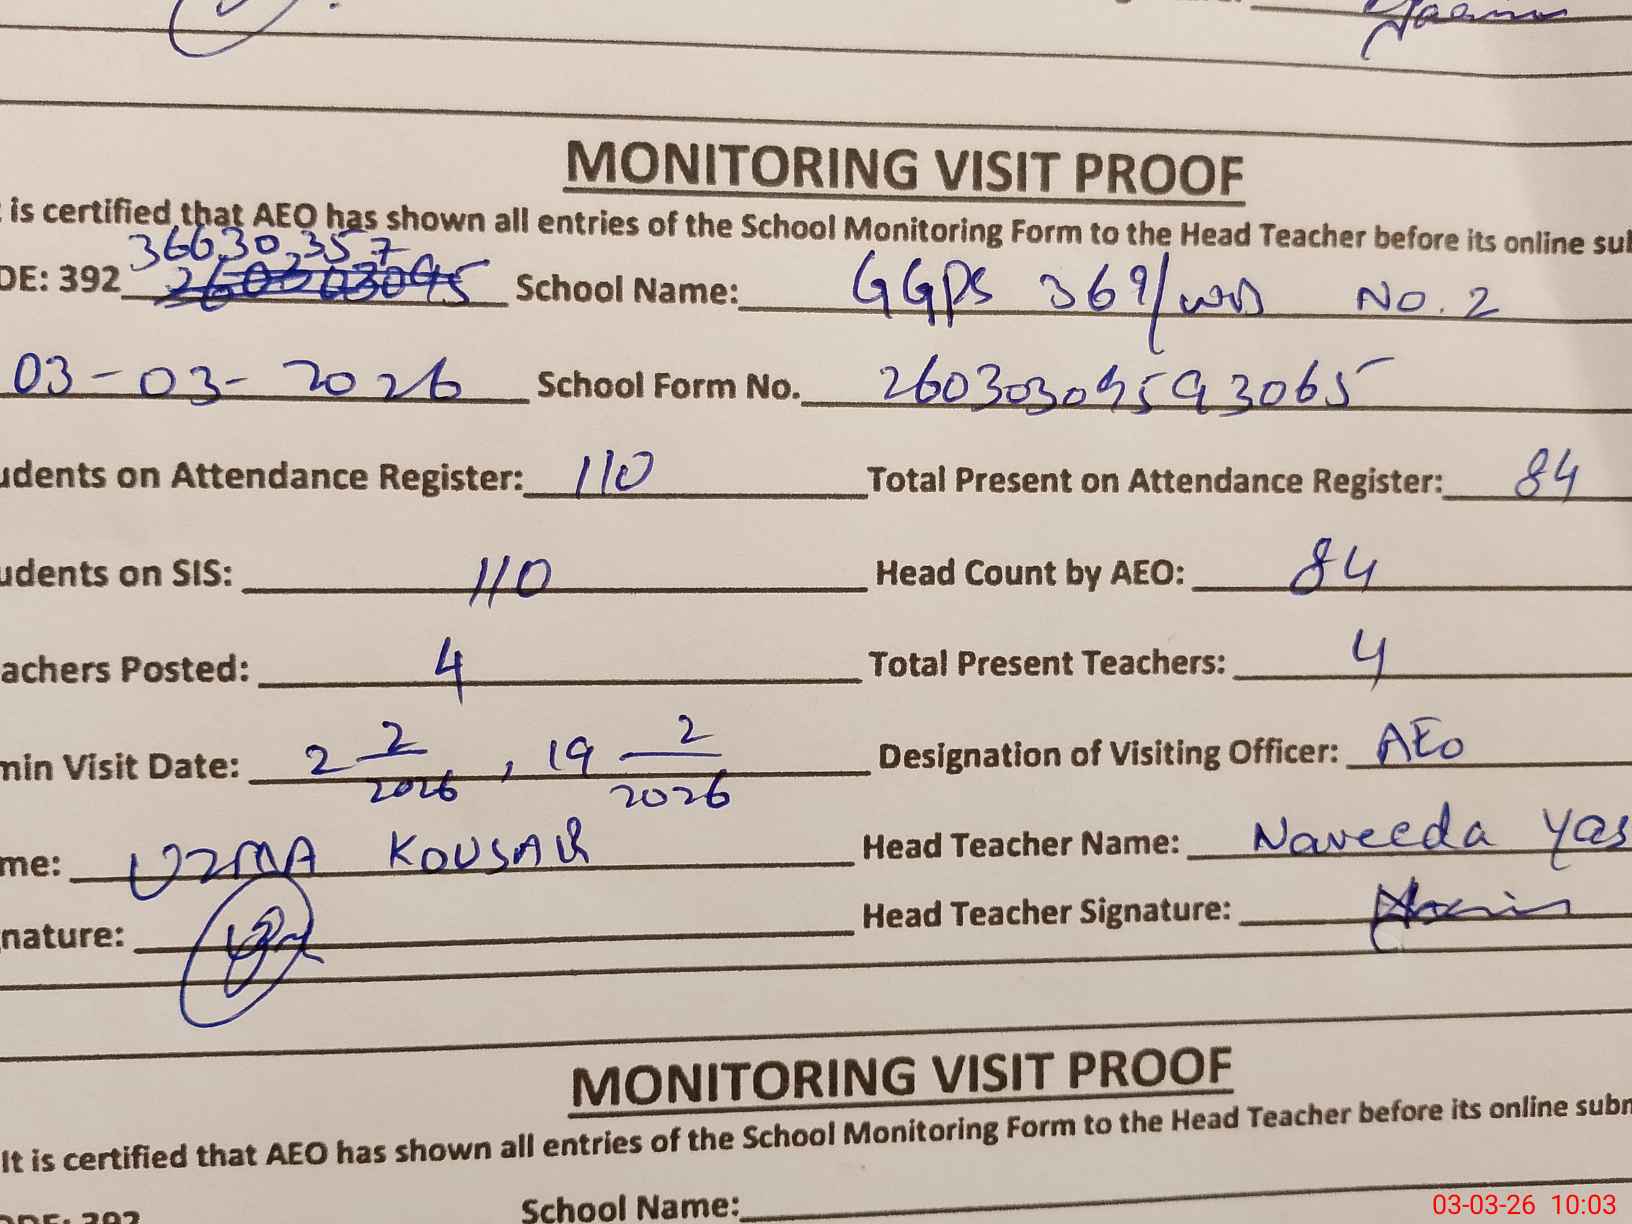 MONITORING VISIT PROOF
is certified that AEO has shown all entries of the School Monitoring Form to the Head Teacher before its online sub
36630357
DE: 392 School Name: GGPS 369/WB No. 2
03-03-2026 School Form No. 26030309593065
udents on Attendance Register: 110 Total Present on Attendance Register: 84
udents on SIS: 110 Head Count by AEO: 84
achers Posted: 4 Total Present Teachers: 4
min Visit Date: 2 2/2026, 19 2/2026 Designation of Visiting Officer: AEO
me: UZMA KOUSAR Head Teacher Name: Naveeda Yas
nature: Head Teacher Signature:
MONITORING VISIT PROOF
It is certified that AEO has shown all entries of the School Monitoring Form to the Head Teacher before its online subm
ODE: 392 School Name:
03-03-26 10:03